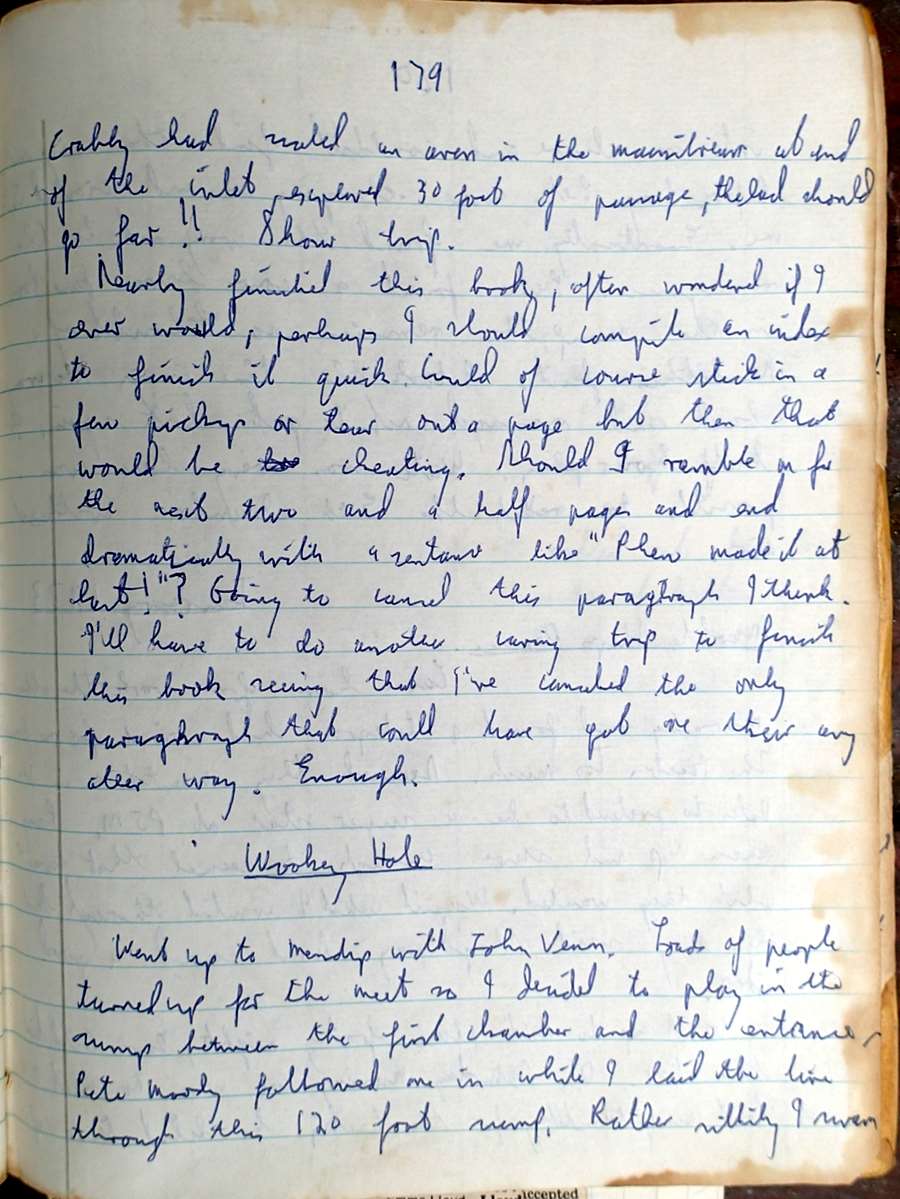 179
Crabby had                   in the mainstream at end
of the inlet, explored 30 foot of passage, the lad should
go far !! 8 hour trip.
Nearly finished this book, often wondered if I
ever would, perhaps I should compile an index
to finish it quick. Could of course stick in a
few pickys or tear out a page but then that
would be cheating. Should I ramble on for
the next two and a half pages and end
dramatically with a sentance like "Phew made it at
last!"? Going to cancel this paragraph I think.
I'll have to do another caving trip to finish
this book seeing that I've canceled the only
paragraph that could have got me their any
other way. Enough.
Wookey Hole
Went up to Mendip with John Venn. Loads of people
turned up for the meet so I decided to play in the
sump between the first chamber and the entrance,
Pete Moody followed me in while I laid the line
through this 120 foot sump. Rather sillily I swam
accepted